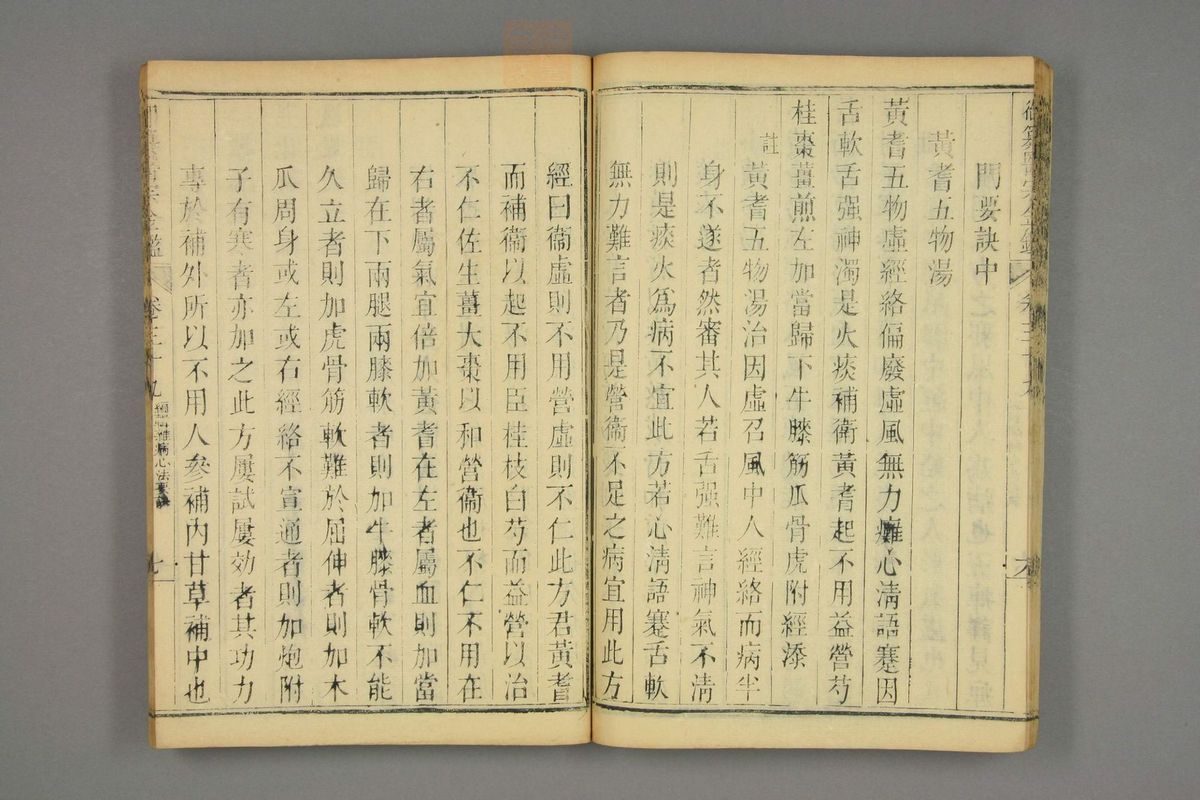 門要訣中
黃耆五物湯
黃耆五物虛經絡偏廢虛風無力癱心清語蹇因
舌軟舌强神濁是火痰補衛黃耆起不用益營芍
桂棗薑煎左加當歸下牛膝筋瓜骨虎附經添
註
黃耆五物湯治因虛召風中人經絡而病半
身不遂者然審其人若舌强難言神氣不清
則是痰火爲病不宜此方若心清語蹇舌軟
無力難言者乃是營衞不足之病宜用此方
經曰衞虛則不用營虛則不仁此方君黃耆
而補衞以起不用臣桂枝白芍而益營以治
不仁佐生薑大棗以和營衞也不仁不用在
右者屬氣宜倍加黃耆在左者屬血則加當
歸在下兩腿兩膝軟者則加牛膝骨軟不能
久立者則加虎骨筋軟難於屈伸者則加木
瓜周身或左或右經絡不宣通者則加炮附
子有寒者亦加之此方屢試屢効者其功力
專於補外所以不用人參補內甘草補中也
卷三十九
雜病心法要訣